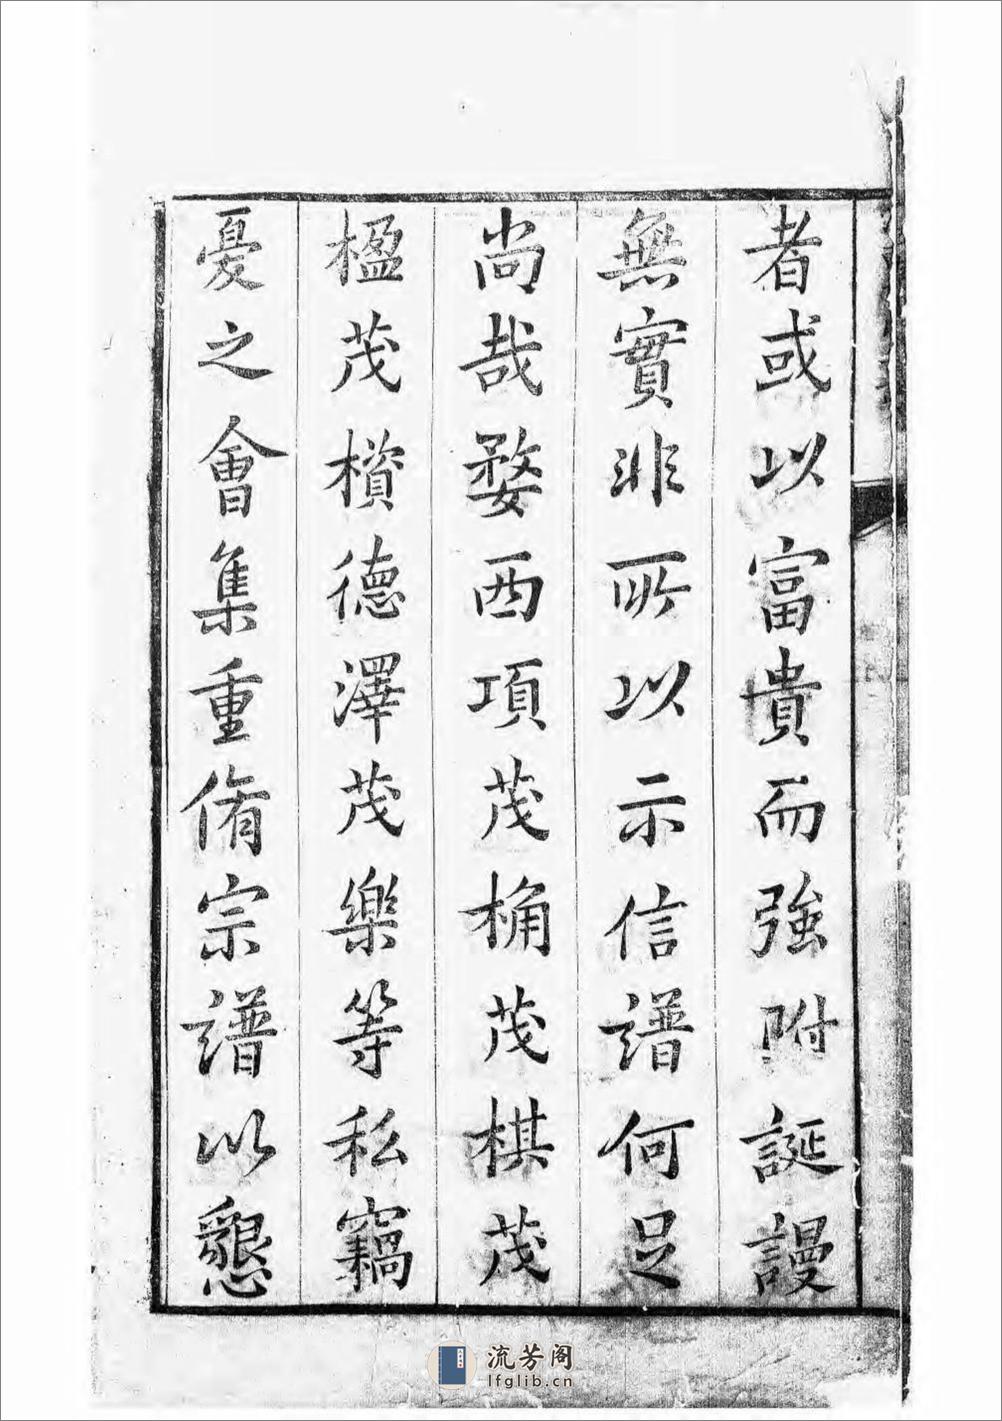 者或以富貴而強附誕謾
無實非所以示信譜何足
尚哉婺西項茂桷茂棋茂
楹茂樻德澤茂樂等私竊
憂之會集重脩宗譜以懇
流芳阁
lfglib.cn